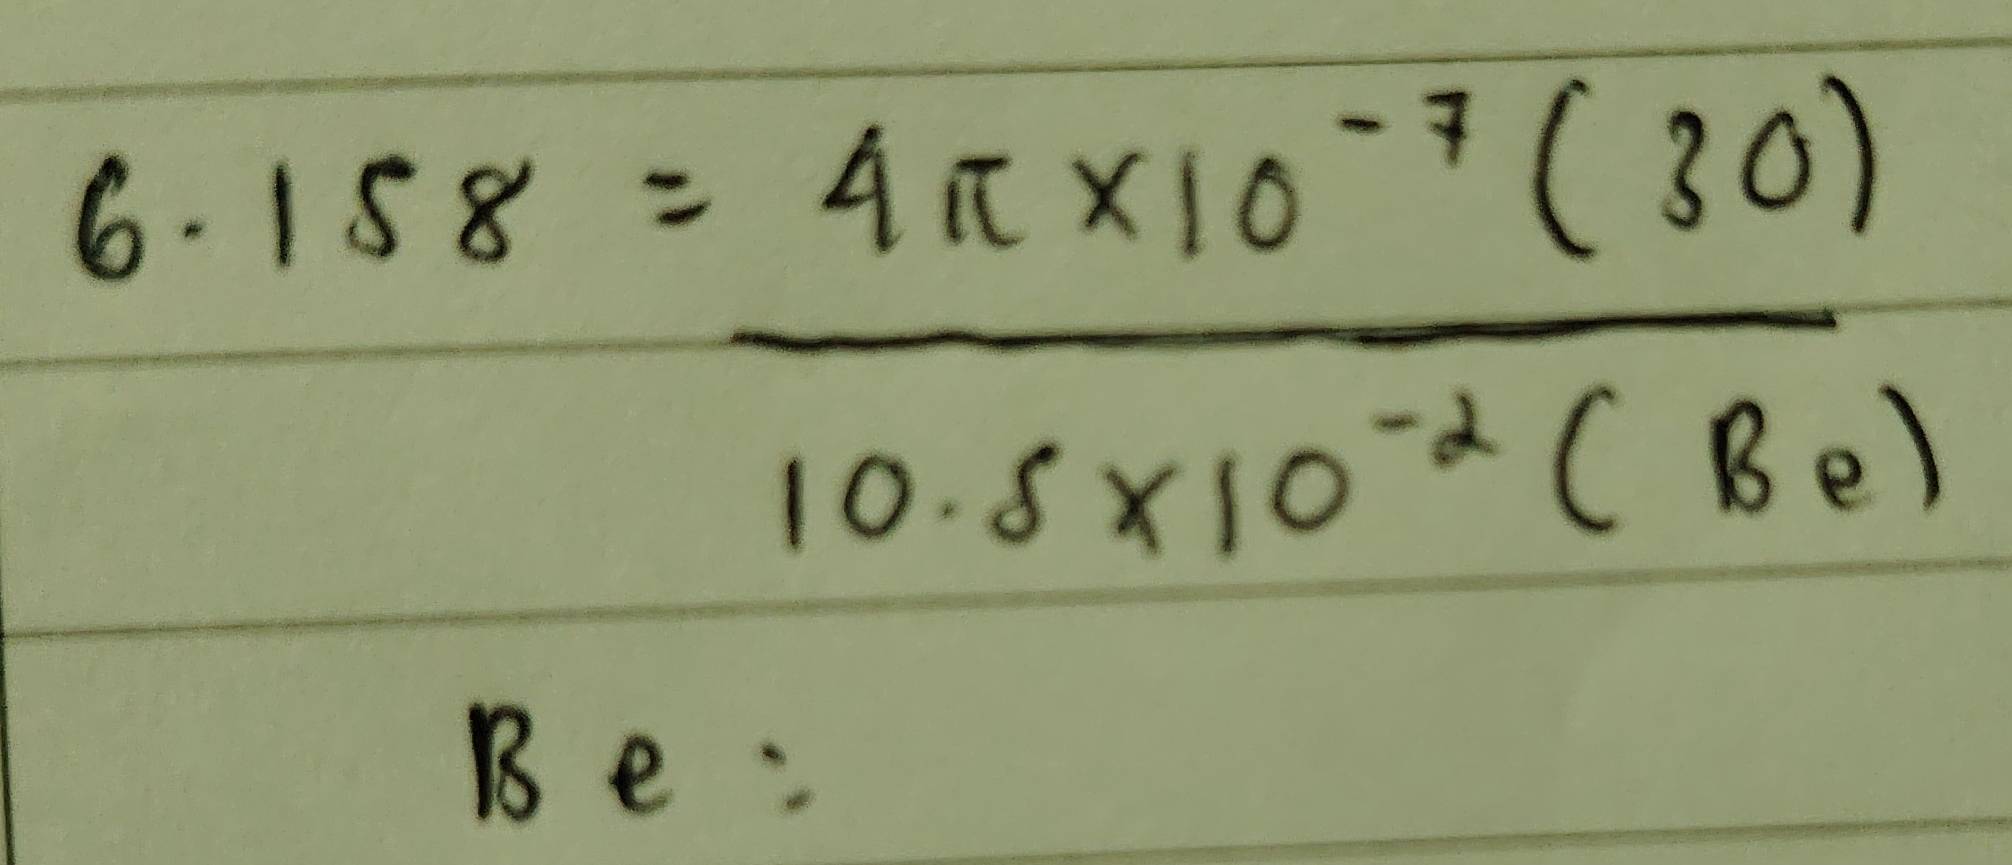 6.158 = 4π×10⁻⁷(30)
10.5×10⁻²(Be)
Be =